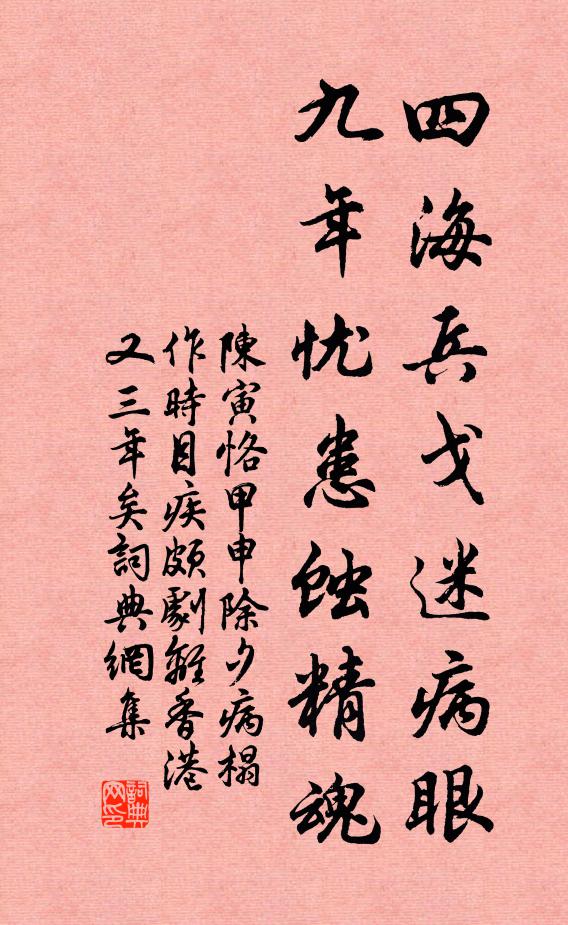 四海兵戈迷病眼
九年忧患蚀精魂
陳寅恪甲申除夕病榻
作時目疾頗劇離香港
又三年矣詞典網集
詞典網印